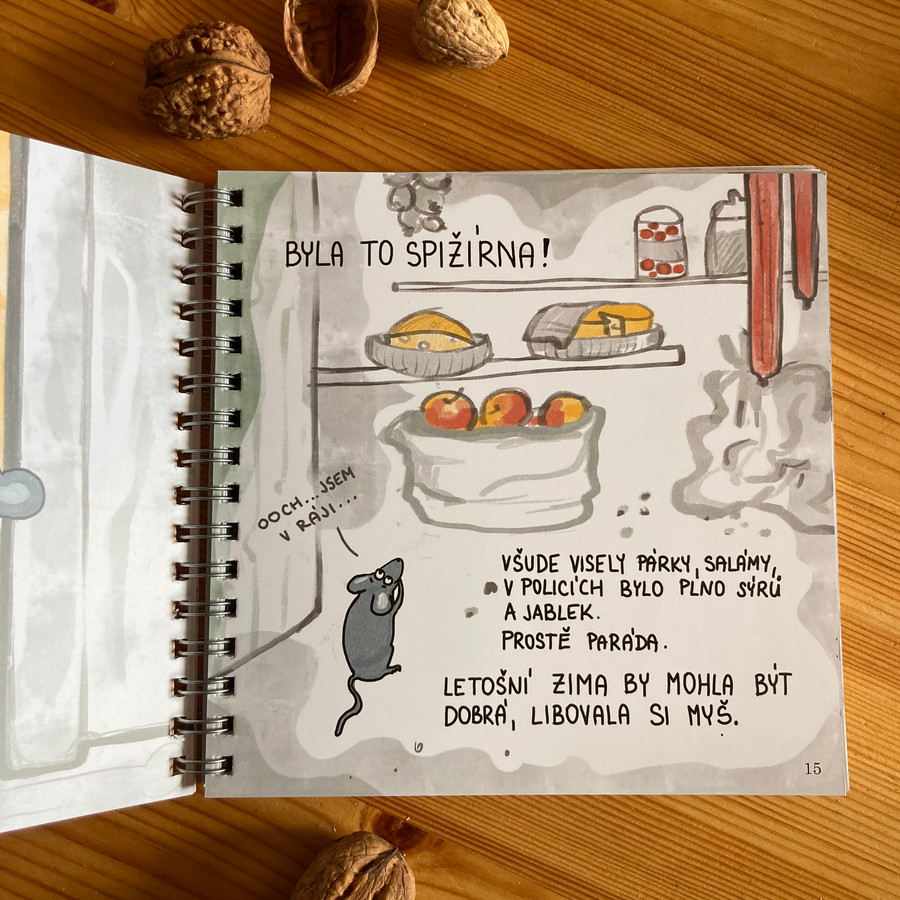 BYLA TO SPIŽÍRNA!
OOCH...JSEM
V RÁJI...
VŠUDE VISELY PÁRKY, SALÁMY,
V POLICÍCH BYLO PLNO SÝRŮ
A JABLEK.
PROSTĚ PARÁDA.
LETOŠNÍ ZIMA BY MOHLA BÝT
DOBRÁ, LIBOVALA SI MYŠ.
15